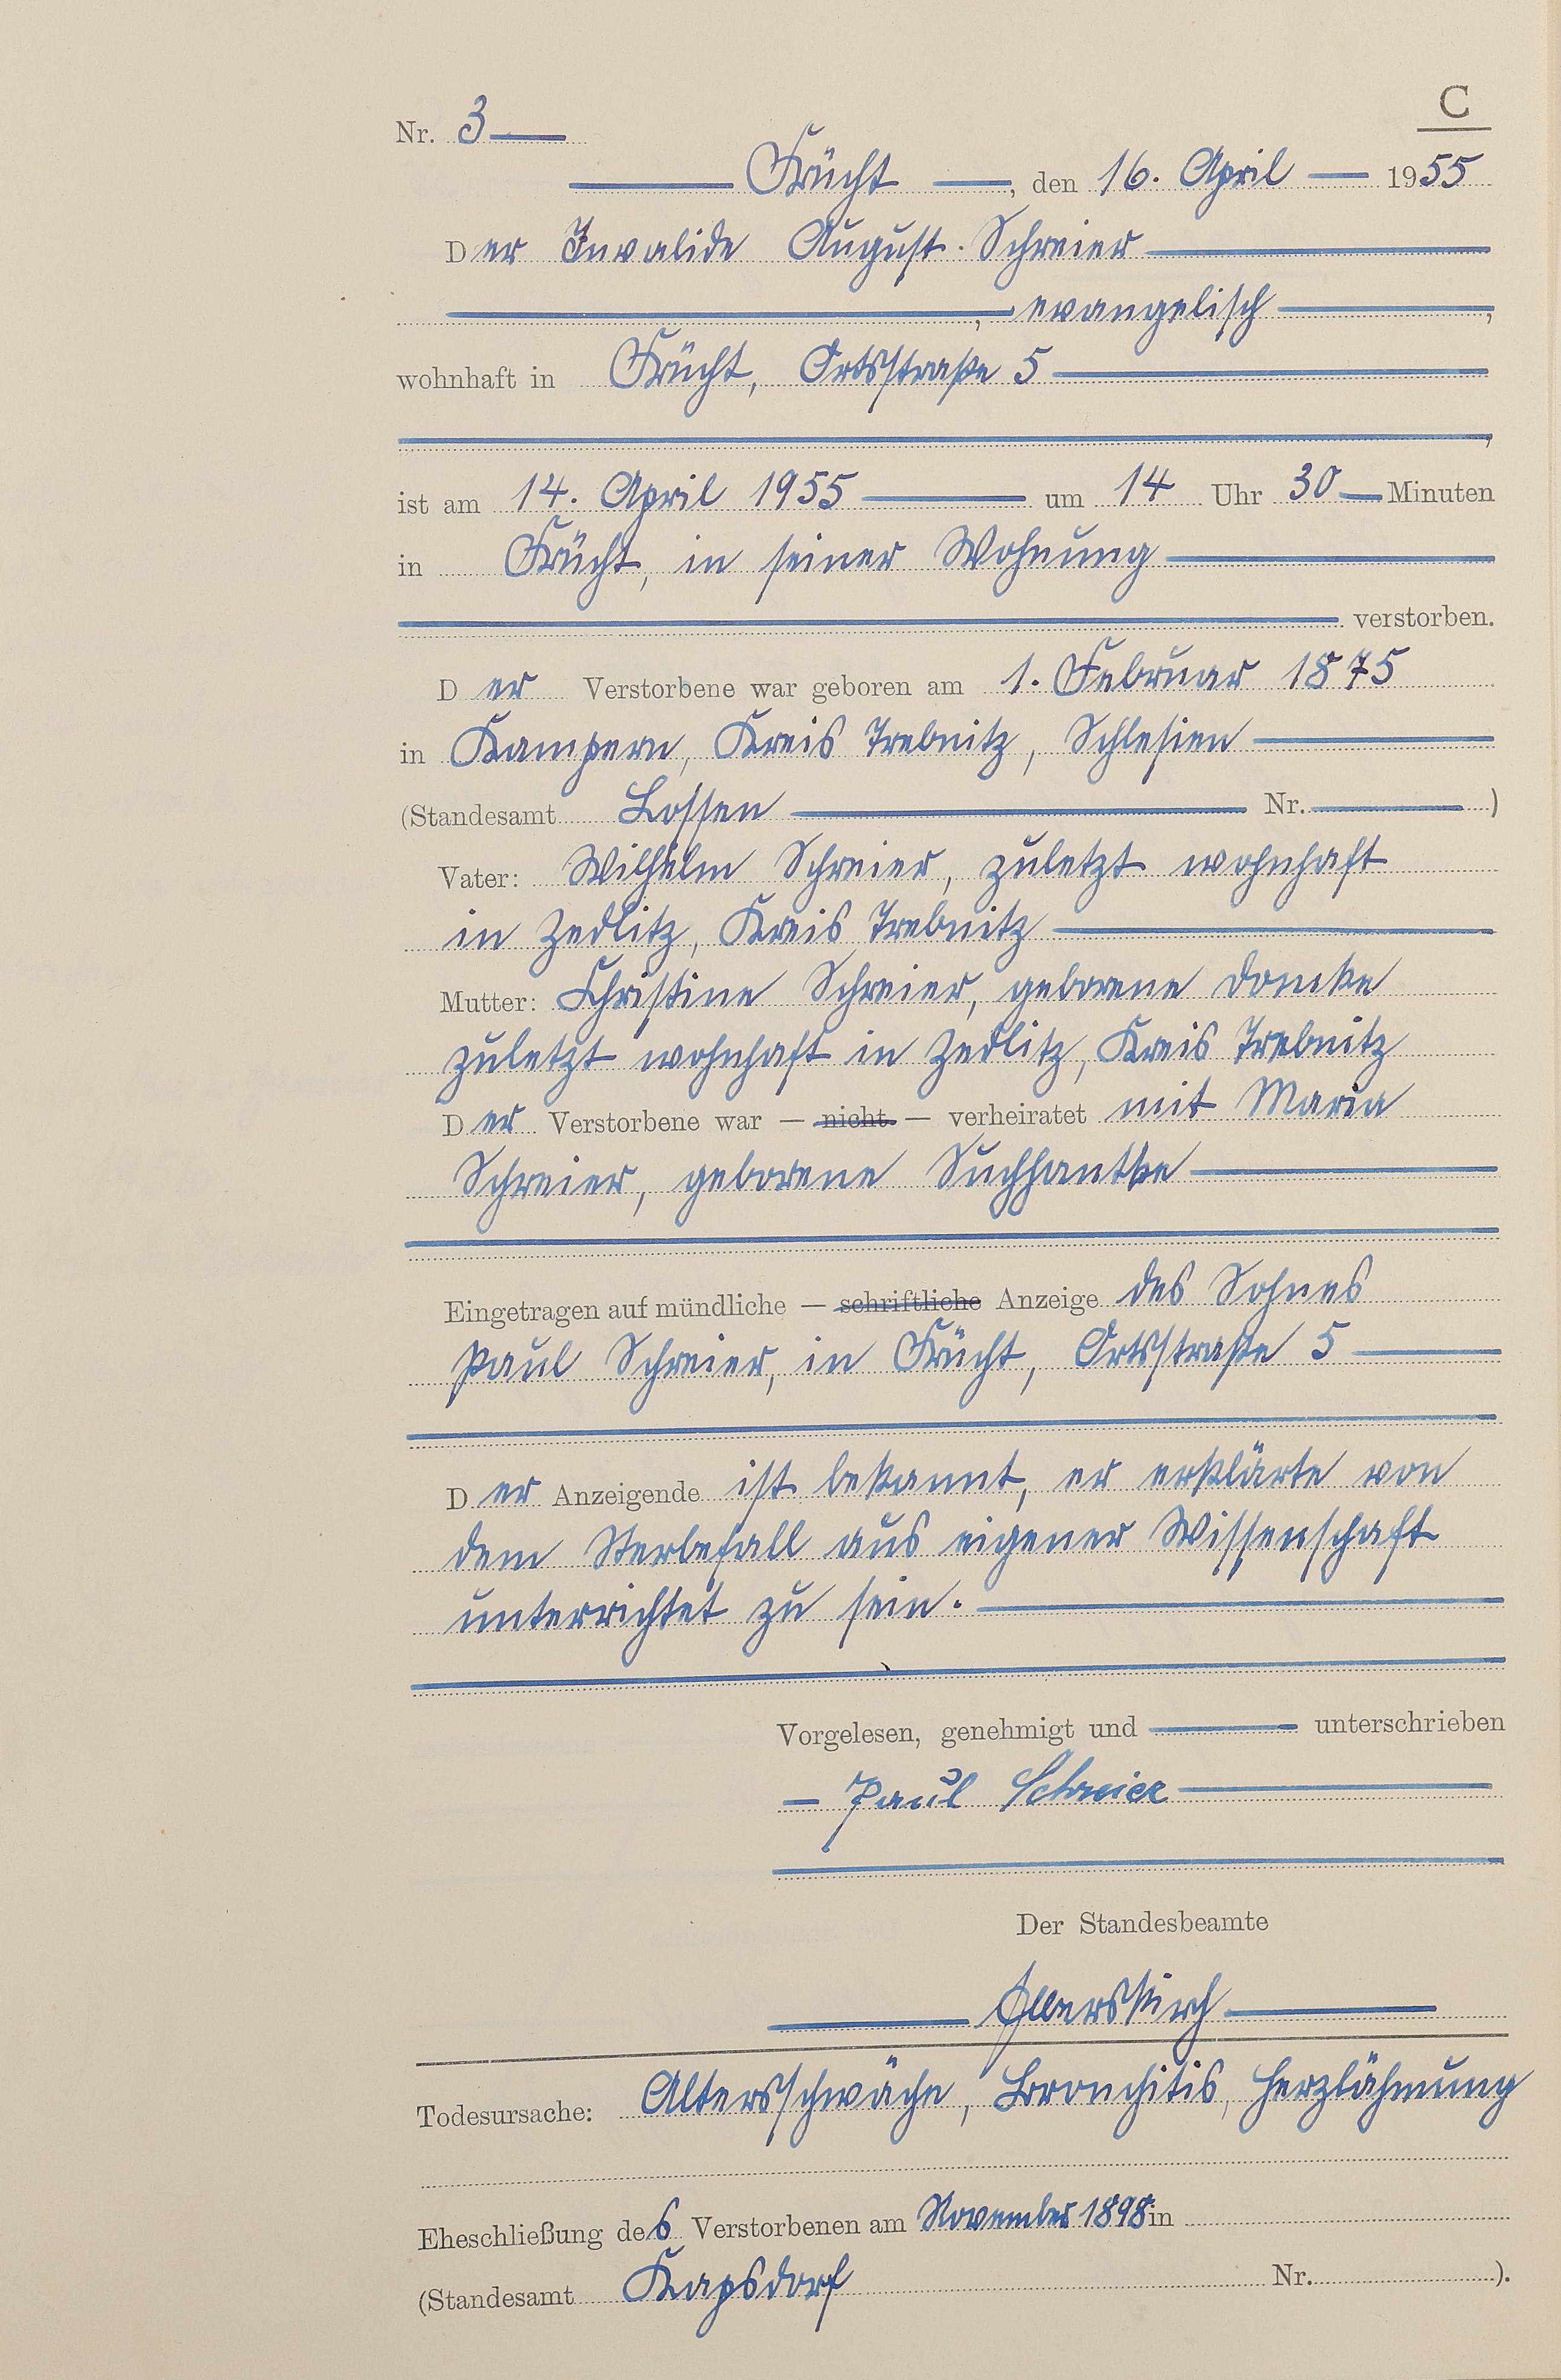 C
Nr. 3
Frücht, den 16. April 1955
Der Invalide August Schreier
, evangelisch,
wohnhaft in Frücht, Ortsstraße 5
,
ist am 14. April 1955 um 14 Uhr 30 Minuten
in Frücht, in seiner Wohnung
verstorben.
Der Verstorbene war geboren am 1. Februar 1875
in Kampern, Kreis Trebnitz, Schlesien
(Standesamt Lossen Nr. )
Vater: Wilhelm Schreier, zuletzt wohnhaft
in Zedlitz, Kreis Trebnitz
Mutter: Christine Schreier, geborene Domke
zuletzt wohnhaft in Zedlitz, Kreis Trebnitz
Der Verstorbene war — nicht — verheiratet mit Maria
Schreier, geborene Suchhantke
Eingetragen auf mündliche — schriftliche Anzeige des Sohnes
Paul Schreier, in Frücht, Ortsstraße 5
Der Anzeigende ist bekannt, er erklärte von
dem Sterbefall aus eigener Wissenschaft
unterrichtet zu sein.
Vorgelesen, genehmigt und unterschrieben
Paul Schreier
Der Standesbeamte
Todesursache: Altersschwäche, Bronchitis, Herzlähmung
Eheschließung des Verstorbenen am November 1898 in
(Standesamt Kapsdorf Nr. ).